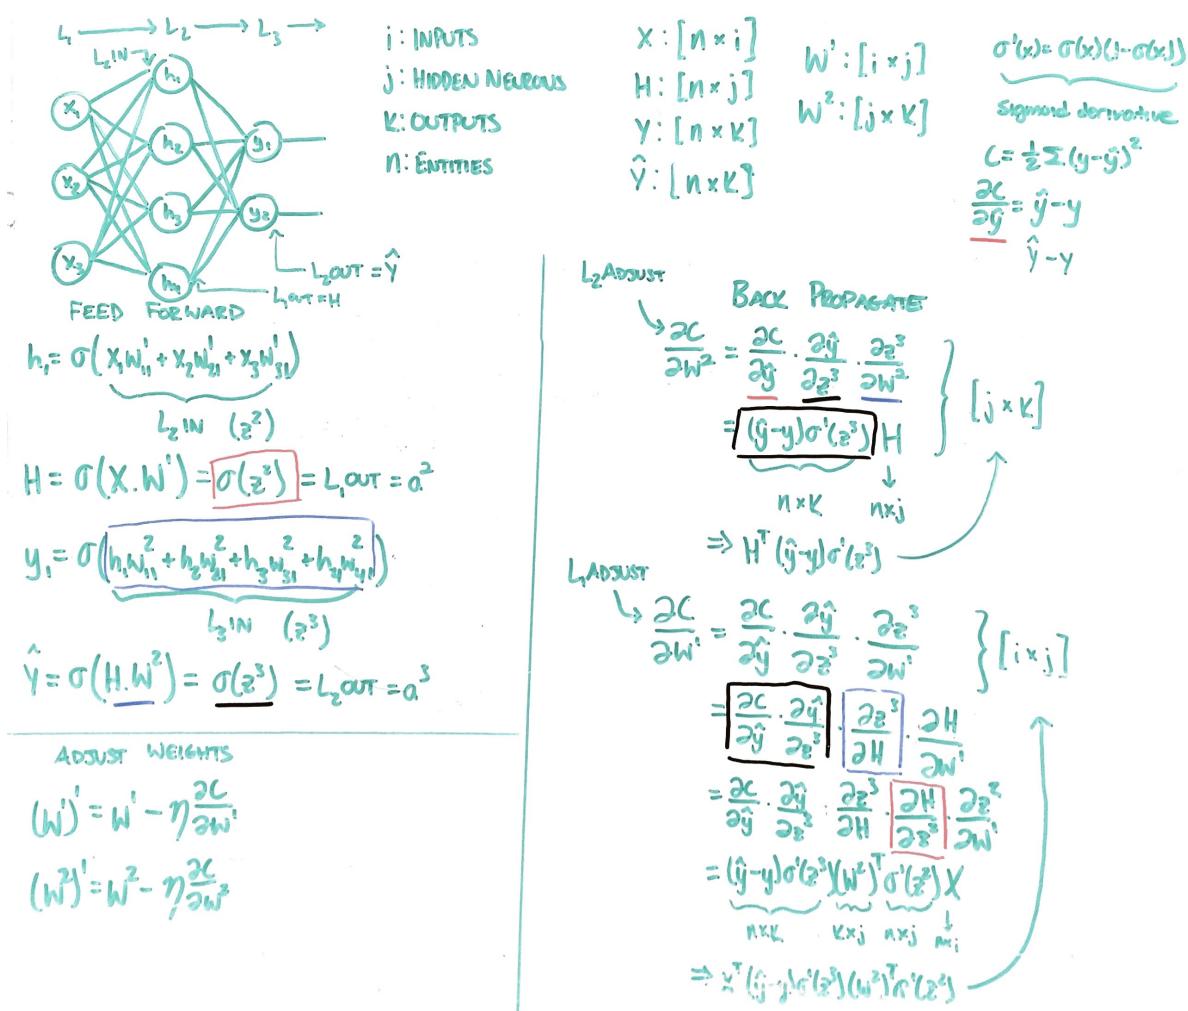 L₁ → L₂ → L₃ →
L₂IN
x₁
x₂
x₃
h₁
h₂
h₃
h₄
y₁
y₂
L₂OUT = Ŷ
L₁OUT = H
i : INPUTS
j : HIDDEN NEURONS
K : OUTPUTS
n : ENTITIES
X : [n × i]
H : [n × j]
Y : [n × K]
Ŷ : [n × K]
W¹ : [i × j]
W² : [j × K]
σ'(x) = σ(x)(1-σ(x))
Sigmoid derivative
C = ½ Σ (y-ŷ)²
∂C/∂ŷ = ŷ-y
Ŷ-Y
FEED FORWARD
h₁ = σ(x₁w¹₁₁ + x₂w¹₂₁ + x₃w¹₃₁)
L₂IN (z²)
H = σ(X.W¹) = σ(z²) = L₁OUT = a²
y₁ = σ(h₁w²₁₁ + h₂w²₂₁ + h₃w²₃₁ + h₄w²₄₁)
L₃IN (z³)
Ŷ = σ(H.W²) = σ(z³) = L₂OUT = a³
ADJUST WEIGHTS
(W¹)' = W¹ - η ∂C/∂W¹
(W²)' = W² - η ∂C/∂W²
L₂ADJUST
BACK PROPAGATE
∂C/∂W² = ∂C/∂ŷ · ∂ŷ/∂z³ · ∂z³/∂W² } [j × K]
= (ŷ-y)σ'(z³) H
n×K n×j
⇒ Hᵀ(ŷ-y)σ'(z³)
L₁ADJUST
∂C/∂W¹ = ∂C/∂ŷ · ∂ŷ/∂z³ · ∂z³/∂W¹ } [i × j]
= ∂C/∂ŷ · ∂ŷ/∂z³ · ∂z³/∂H · ∂H/∂W¹
= ∂C/∂ŷ · ∂ŷ/∂z³ · ∂z³/∂H · ∂H/∂z² · ∂z²/∂W¹
= (ŷ-y)σ'(z³)(W²)ᵀσ'(z²)X
n×K K×j n×j n×i
⇒ Xᵀ(ŷ-y)σ'(z³)(W²)ᵀσ'(z²)